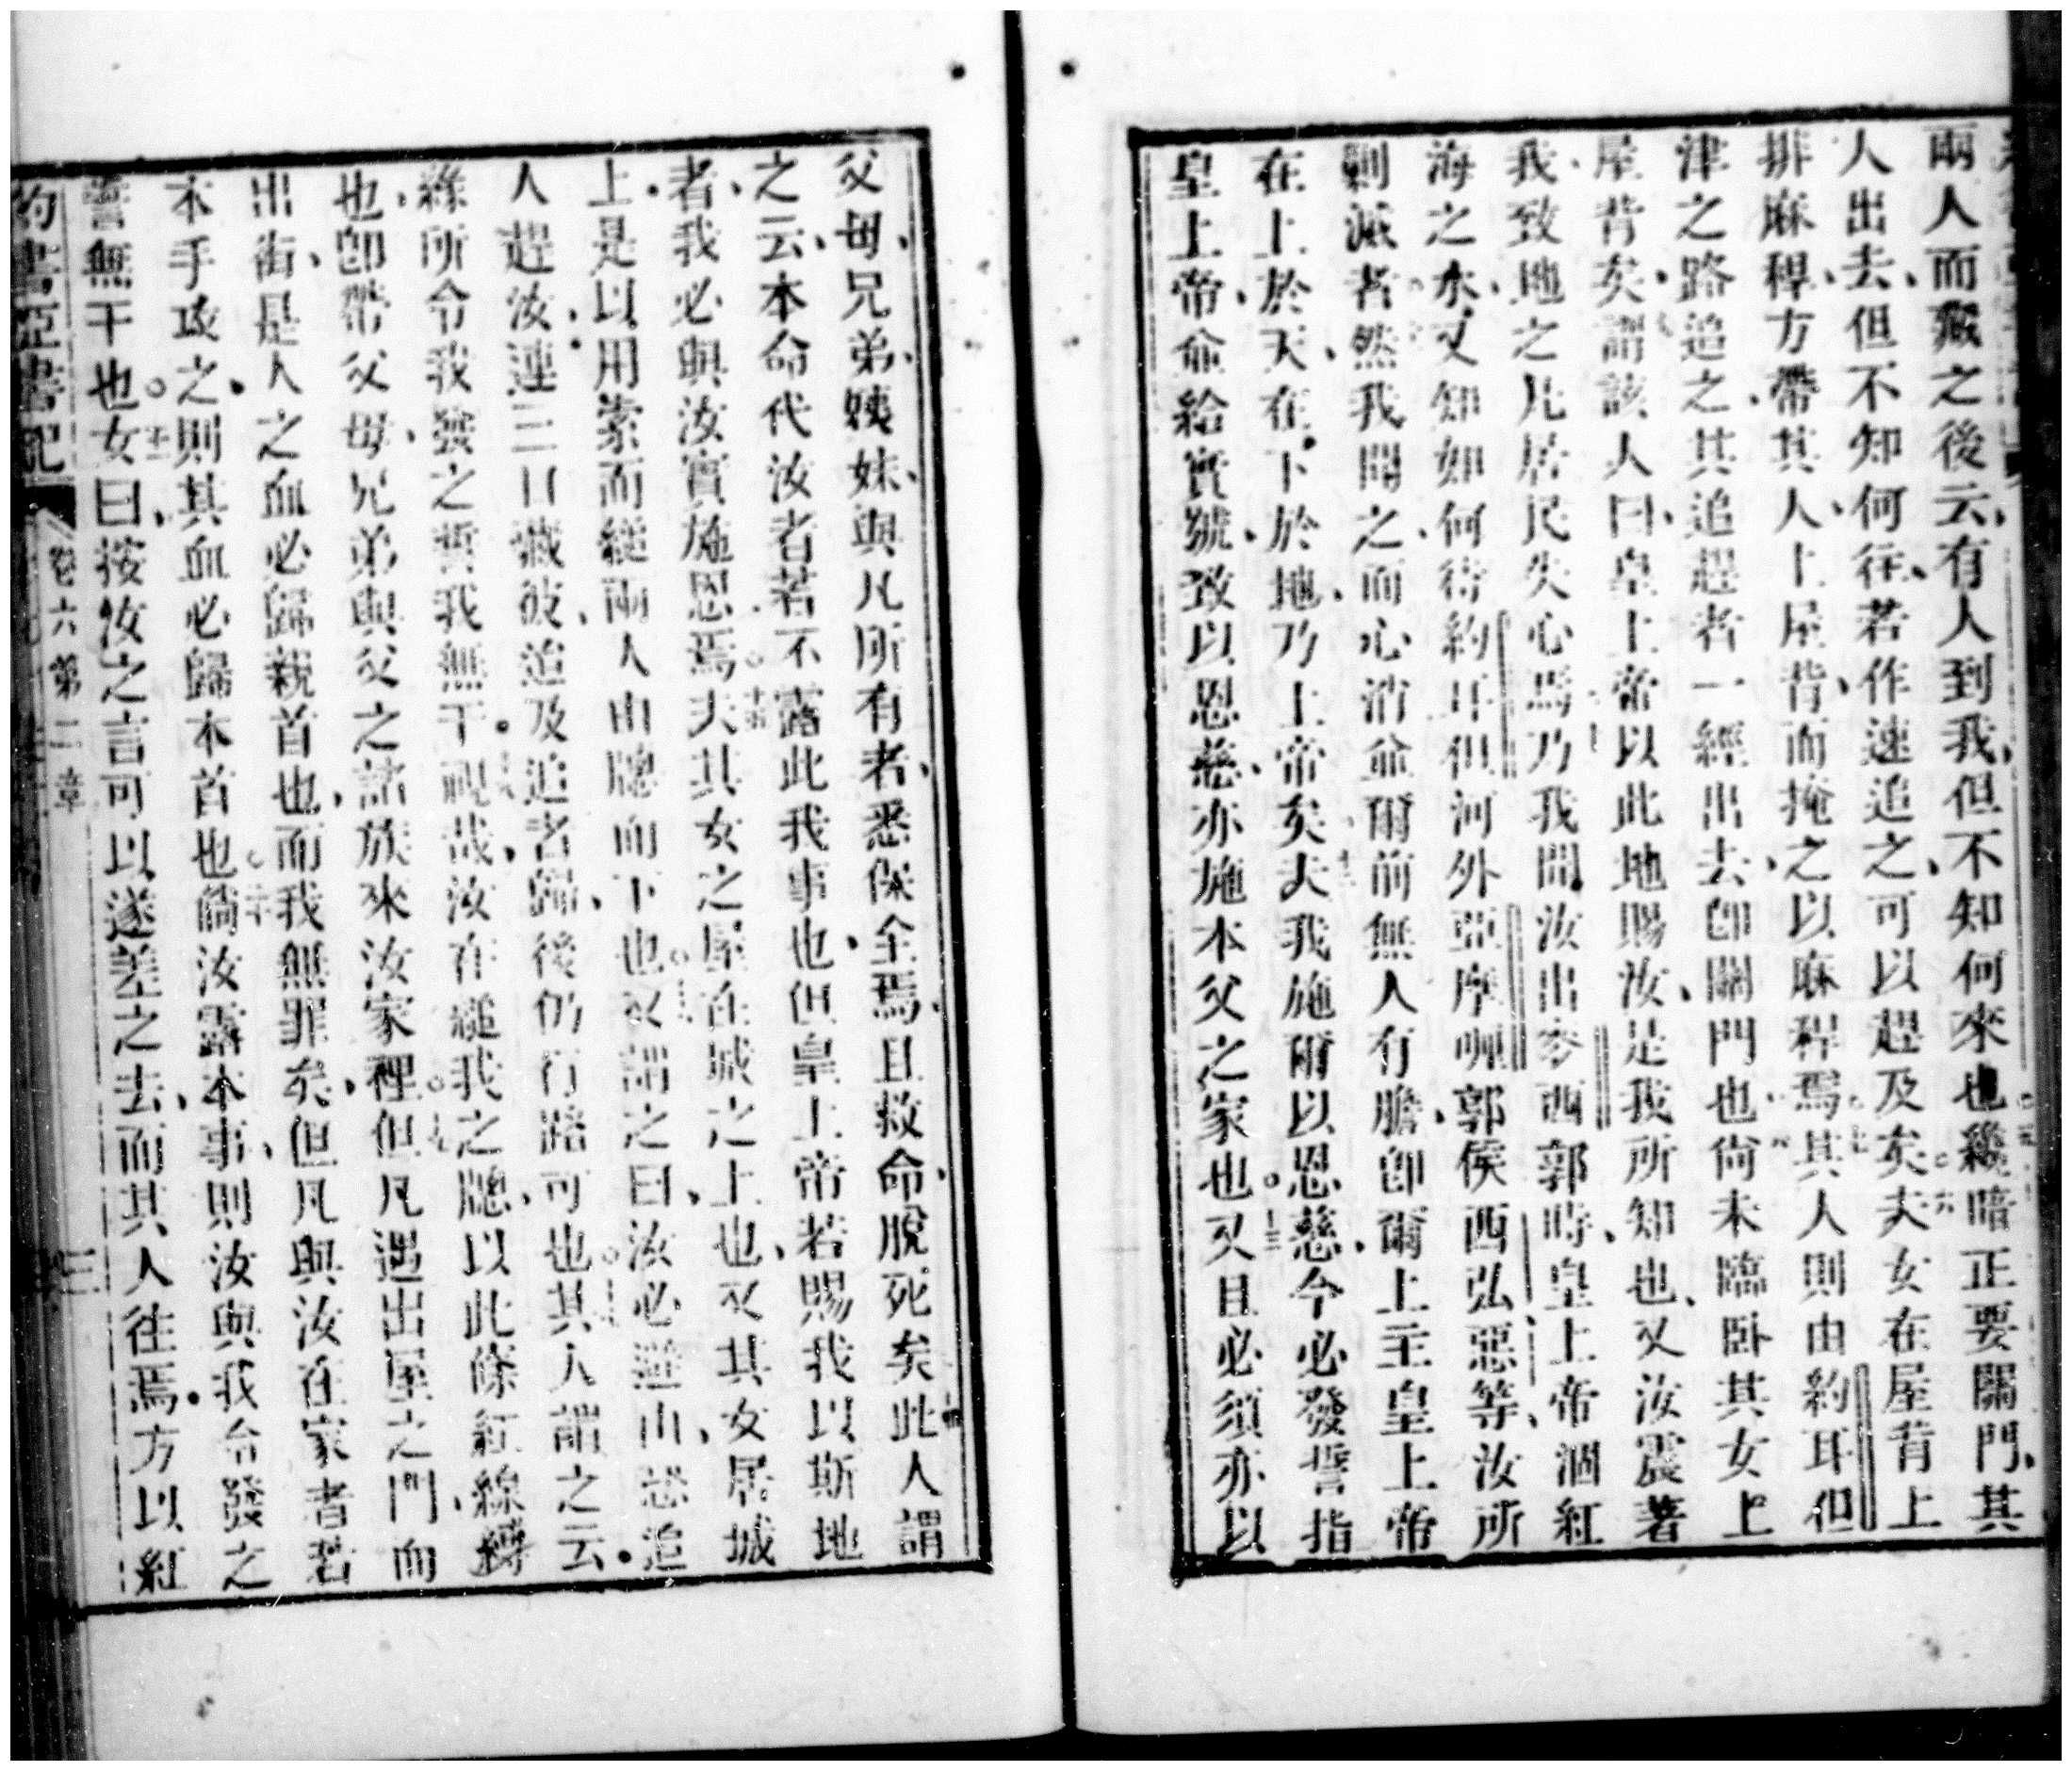 兩人而藏之後云、有人到我、但不知何來也纔暗正要關門、其
人出去、但不知何往、若作速追之、可以趕及矣夫女在屋背上
排麻稈、方帶其人、上屋背、而掩之以麻稈焉其人則由約耳但
津之路追之、其追趕者一經出去、卽關門也尙未臨卧其女上
屋背矣、謂該人曰、皇上帝以此地賜汝、是我所知也、又汝震著
我、致地之凡居民失心焉乃我聞汝出麥西郭時、皇上帝涸紅
海之水、又知如何待約耳但河外亞摩哩郭侯西弘惡等、汝所
剿滅者然我聞之、而心消並爾前無人有膽、卽爾上主皇上帝
在上於天、在下於地、乃上帝矣夫我施爾以恩慈、今必發誓指
皇上帝、並給實號、致以恩慈、亦施本父之家也。又且必須亦以
父母、兄弟、姨妹、與凡所有者、悉保全焉、且救命、脫死矣此人謂
之云、本命代汝者若不露此我事也、但皇上帝若賜我以斯地
者、我必與汝實施恩焉。夫其女之屋在城之上也、又其女居城
上。是以用索而縋兩人由牕而下也。又謂之曰、汝必避山、恐追
人趕汝、連三日藏彼、追及追者歸、後仍行路可也。其人謂之云。
緣所令我發之誓我無干。視哉、汝在縋我之牕、以此條紅線縛
也、卽帶父母、兄弟與父之諸族來汝家裡。但凡遇出屋之門、而
出街、是人之血必歸親首也、而我無罪矣、但凡與汝在家者若
本手攻之、則其血必歸本首也。倘汝露本事、則汝與我令發之
誓無干也。女曰、按汝之言可以遂差之去、而其人往焉。方以紅
約書亞書記 卷六 第二章 三